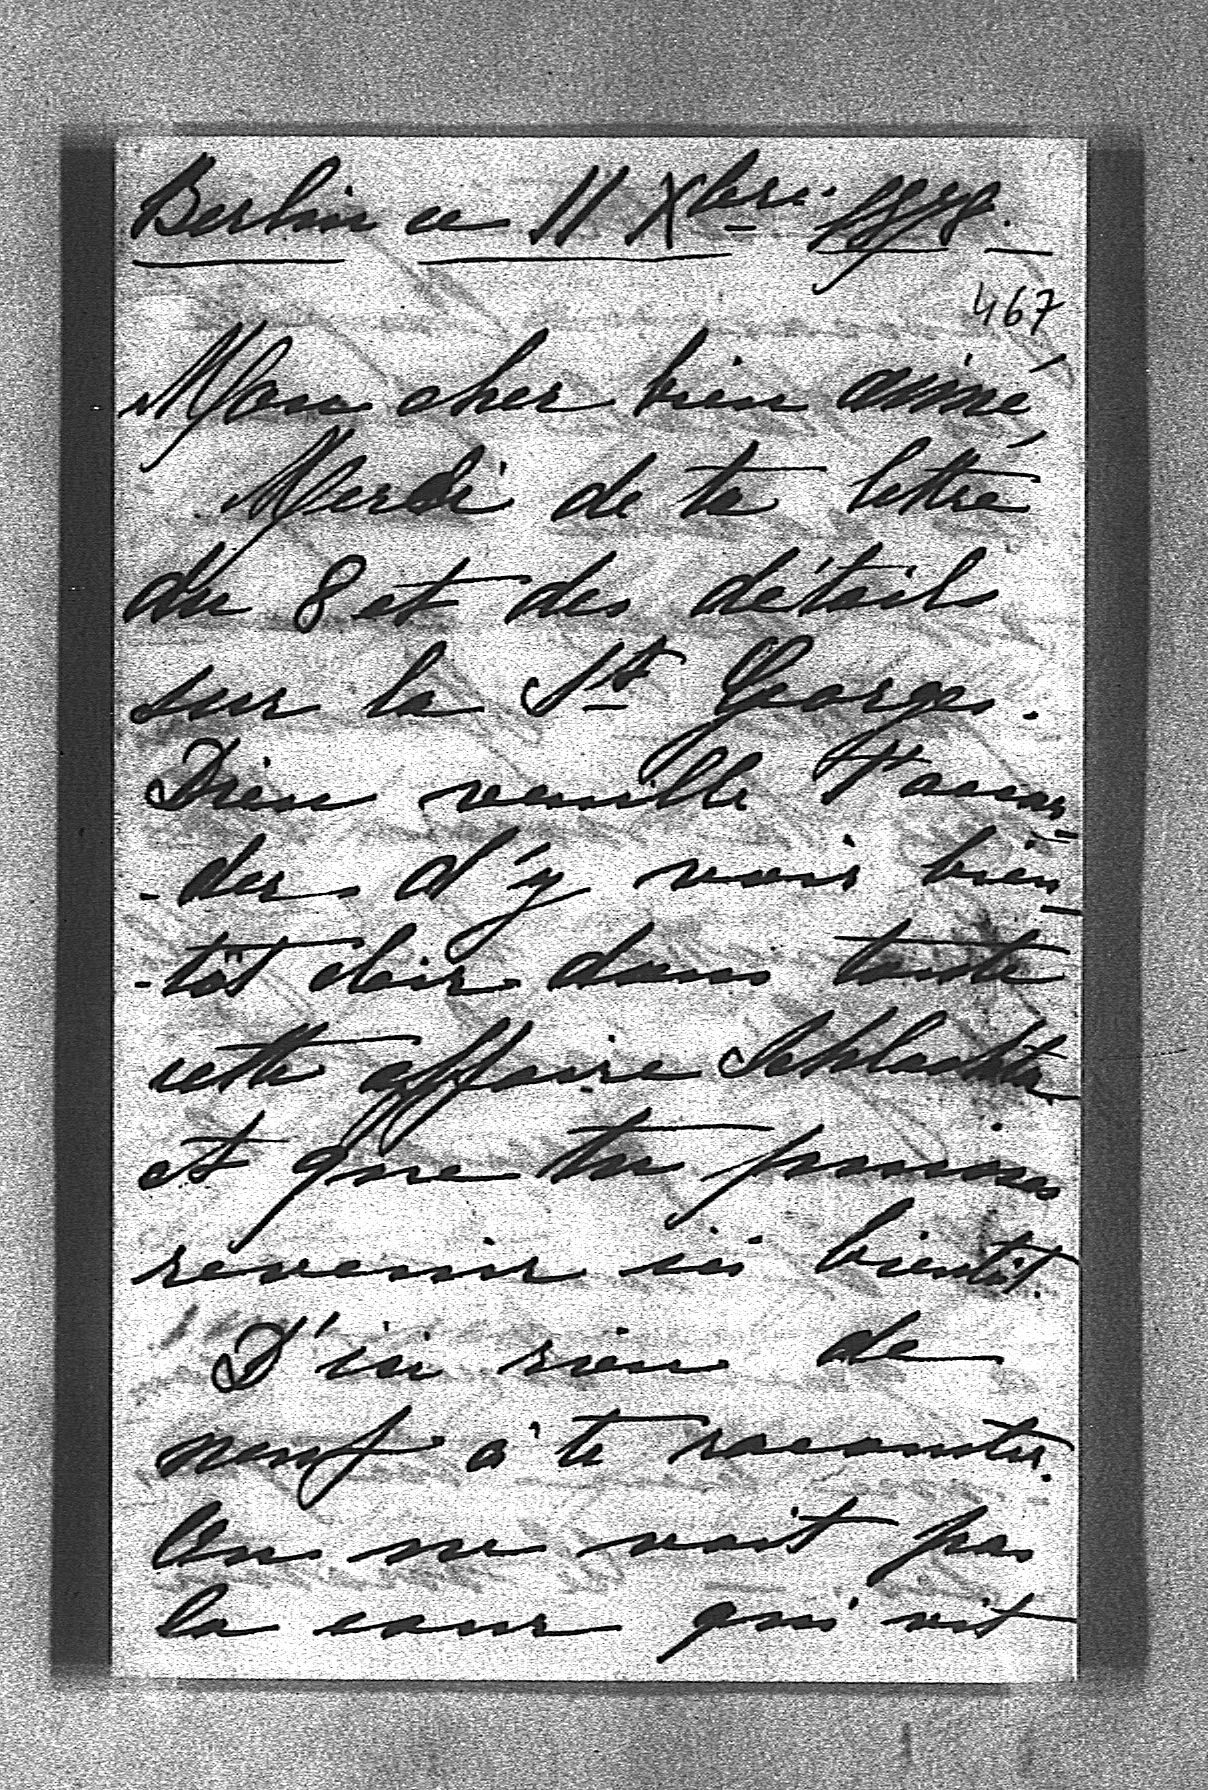 Berlin ce 11 Xbre 1878.
467
Mon cher bien aimé,
Merci de ta lettre
du 8 et des détails
sur la St Georges.
Dieu veuille t'accor=
-der d'y voir bien=
-tôt clair dans toute
cette affaire Schlachta
et que tu puisses
revenir ici bientôt.
D'ici rien de
neuf à te raconter.
On ne voit pas
la cour qui vit